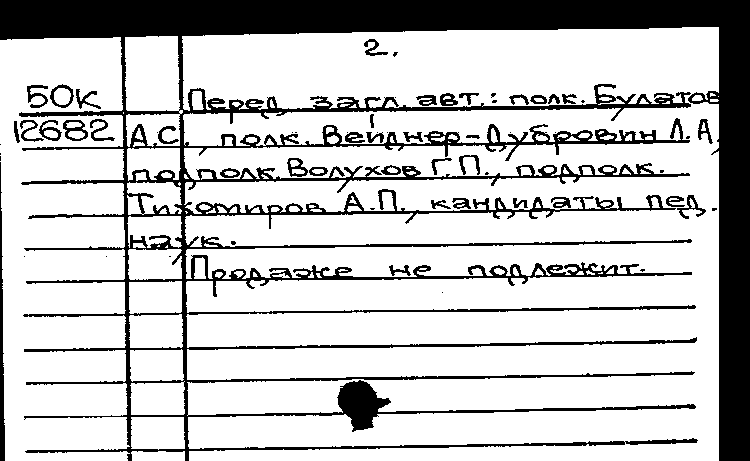 2.
БОК Перед загл. авт.: полк. Булатов
12682 А.С., полк. Вейднер-Дубровин Л.А.,
подполк. Волухов Г.П., подполк.
Тихомиров А.П., кандидаты пед.
наук.
Продаже не подлежит.